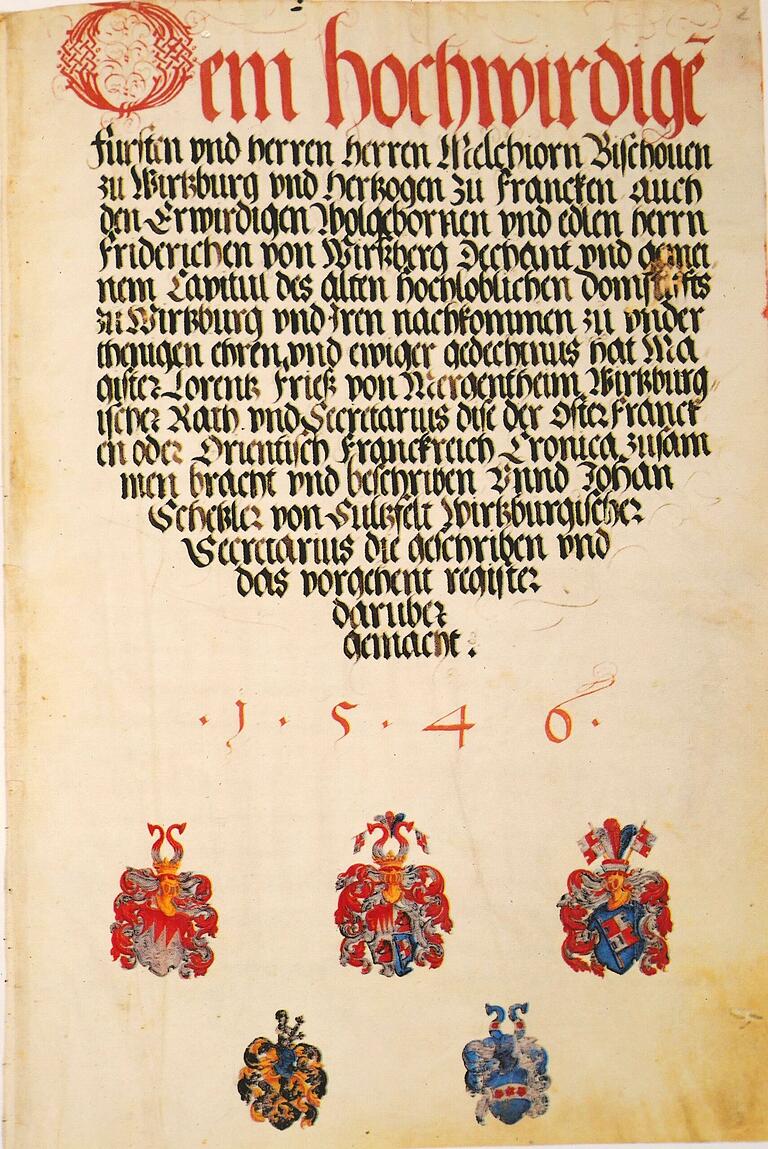 Dem hochwirdigē
Fursten vnd herren herren Melchiorn Bischouen
zu Wirtzburg vnd Hertzogen zu Francken auch
den Erwirdigen Wolgebornen vnd edlen herrn
Friderichen von Wirtzberg Dechant vnd gemei
nem Capitul des alten hochloblichen domstiffts
zu Wirtzburg vnd Iren nachkommen zu vnder
thenigen ehren, vnd ewiger gedechtnus hat Ma
gister Lorentz Frieß von Mergentheim Wirtzburg
ischer Rath vnd Secretarius dise der Oster Franck
en oder Orientisch Franckreich Cronica zusam
men bracht vnd beschriben Vnnd Johan
Schetzler von Sultzfelt Wirtzburgischer
Secretarius die geschriben vnd
das vorgehent register
daruber
gemacht.
. 1 . 5 . 4 6 .
2